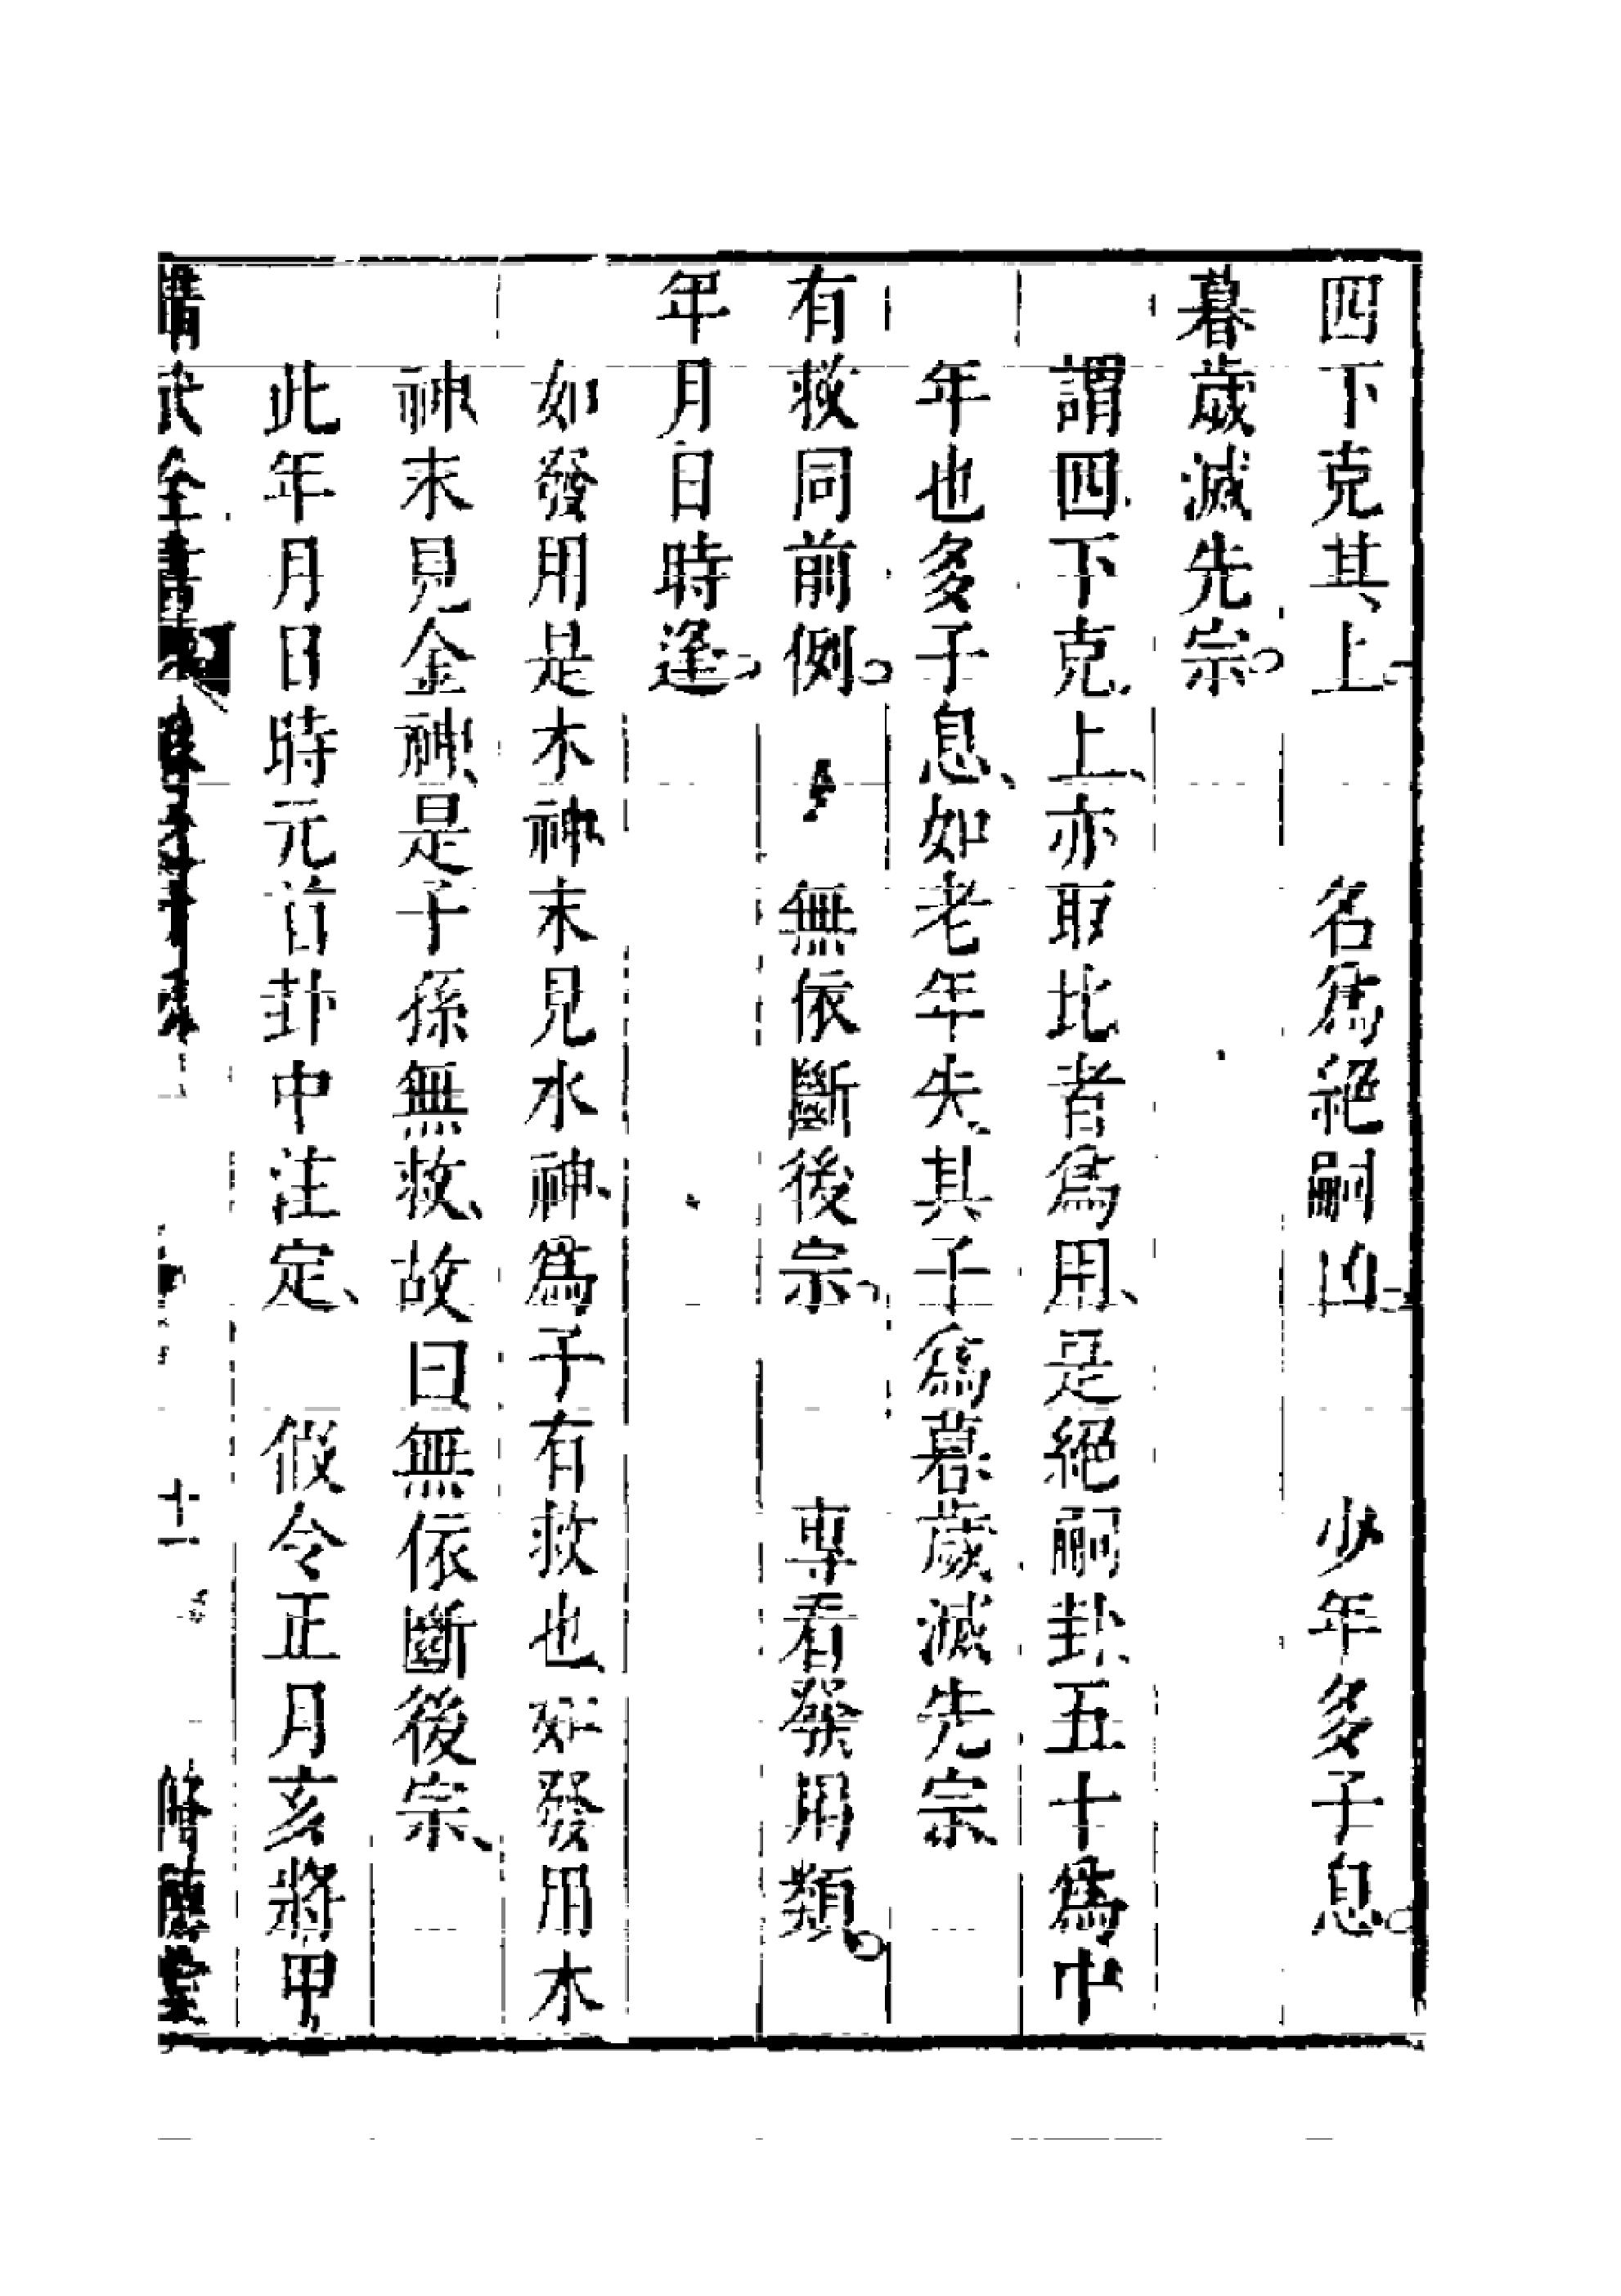 四下克其上。名爲絕嗣凶。少年多子息。
暮歲滅先宗。
謂四下克上、亦取比者爲用、是絕嗣卦、五十爲中
年也多子息、如老年失其子爲暮歲滅先宗
有救同前例。無依斷後宗。專看發用類。
年月日時逢。
如發用是木神末見水神、爲子有救也如發用木
神末見金神、是子孫無救、故曰無依斷後宗、
此年月日時元首卦中注定、假令正月亥將甲
十一